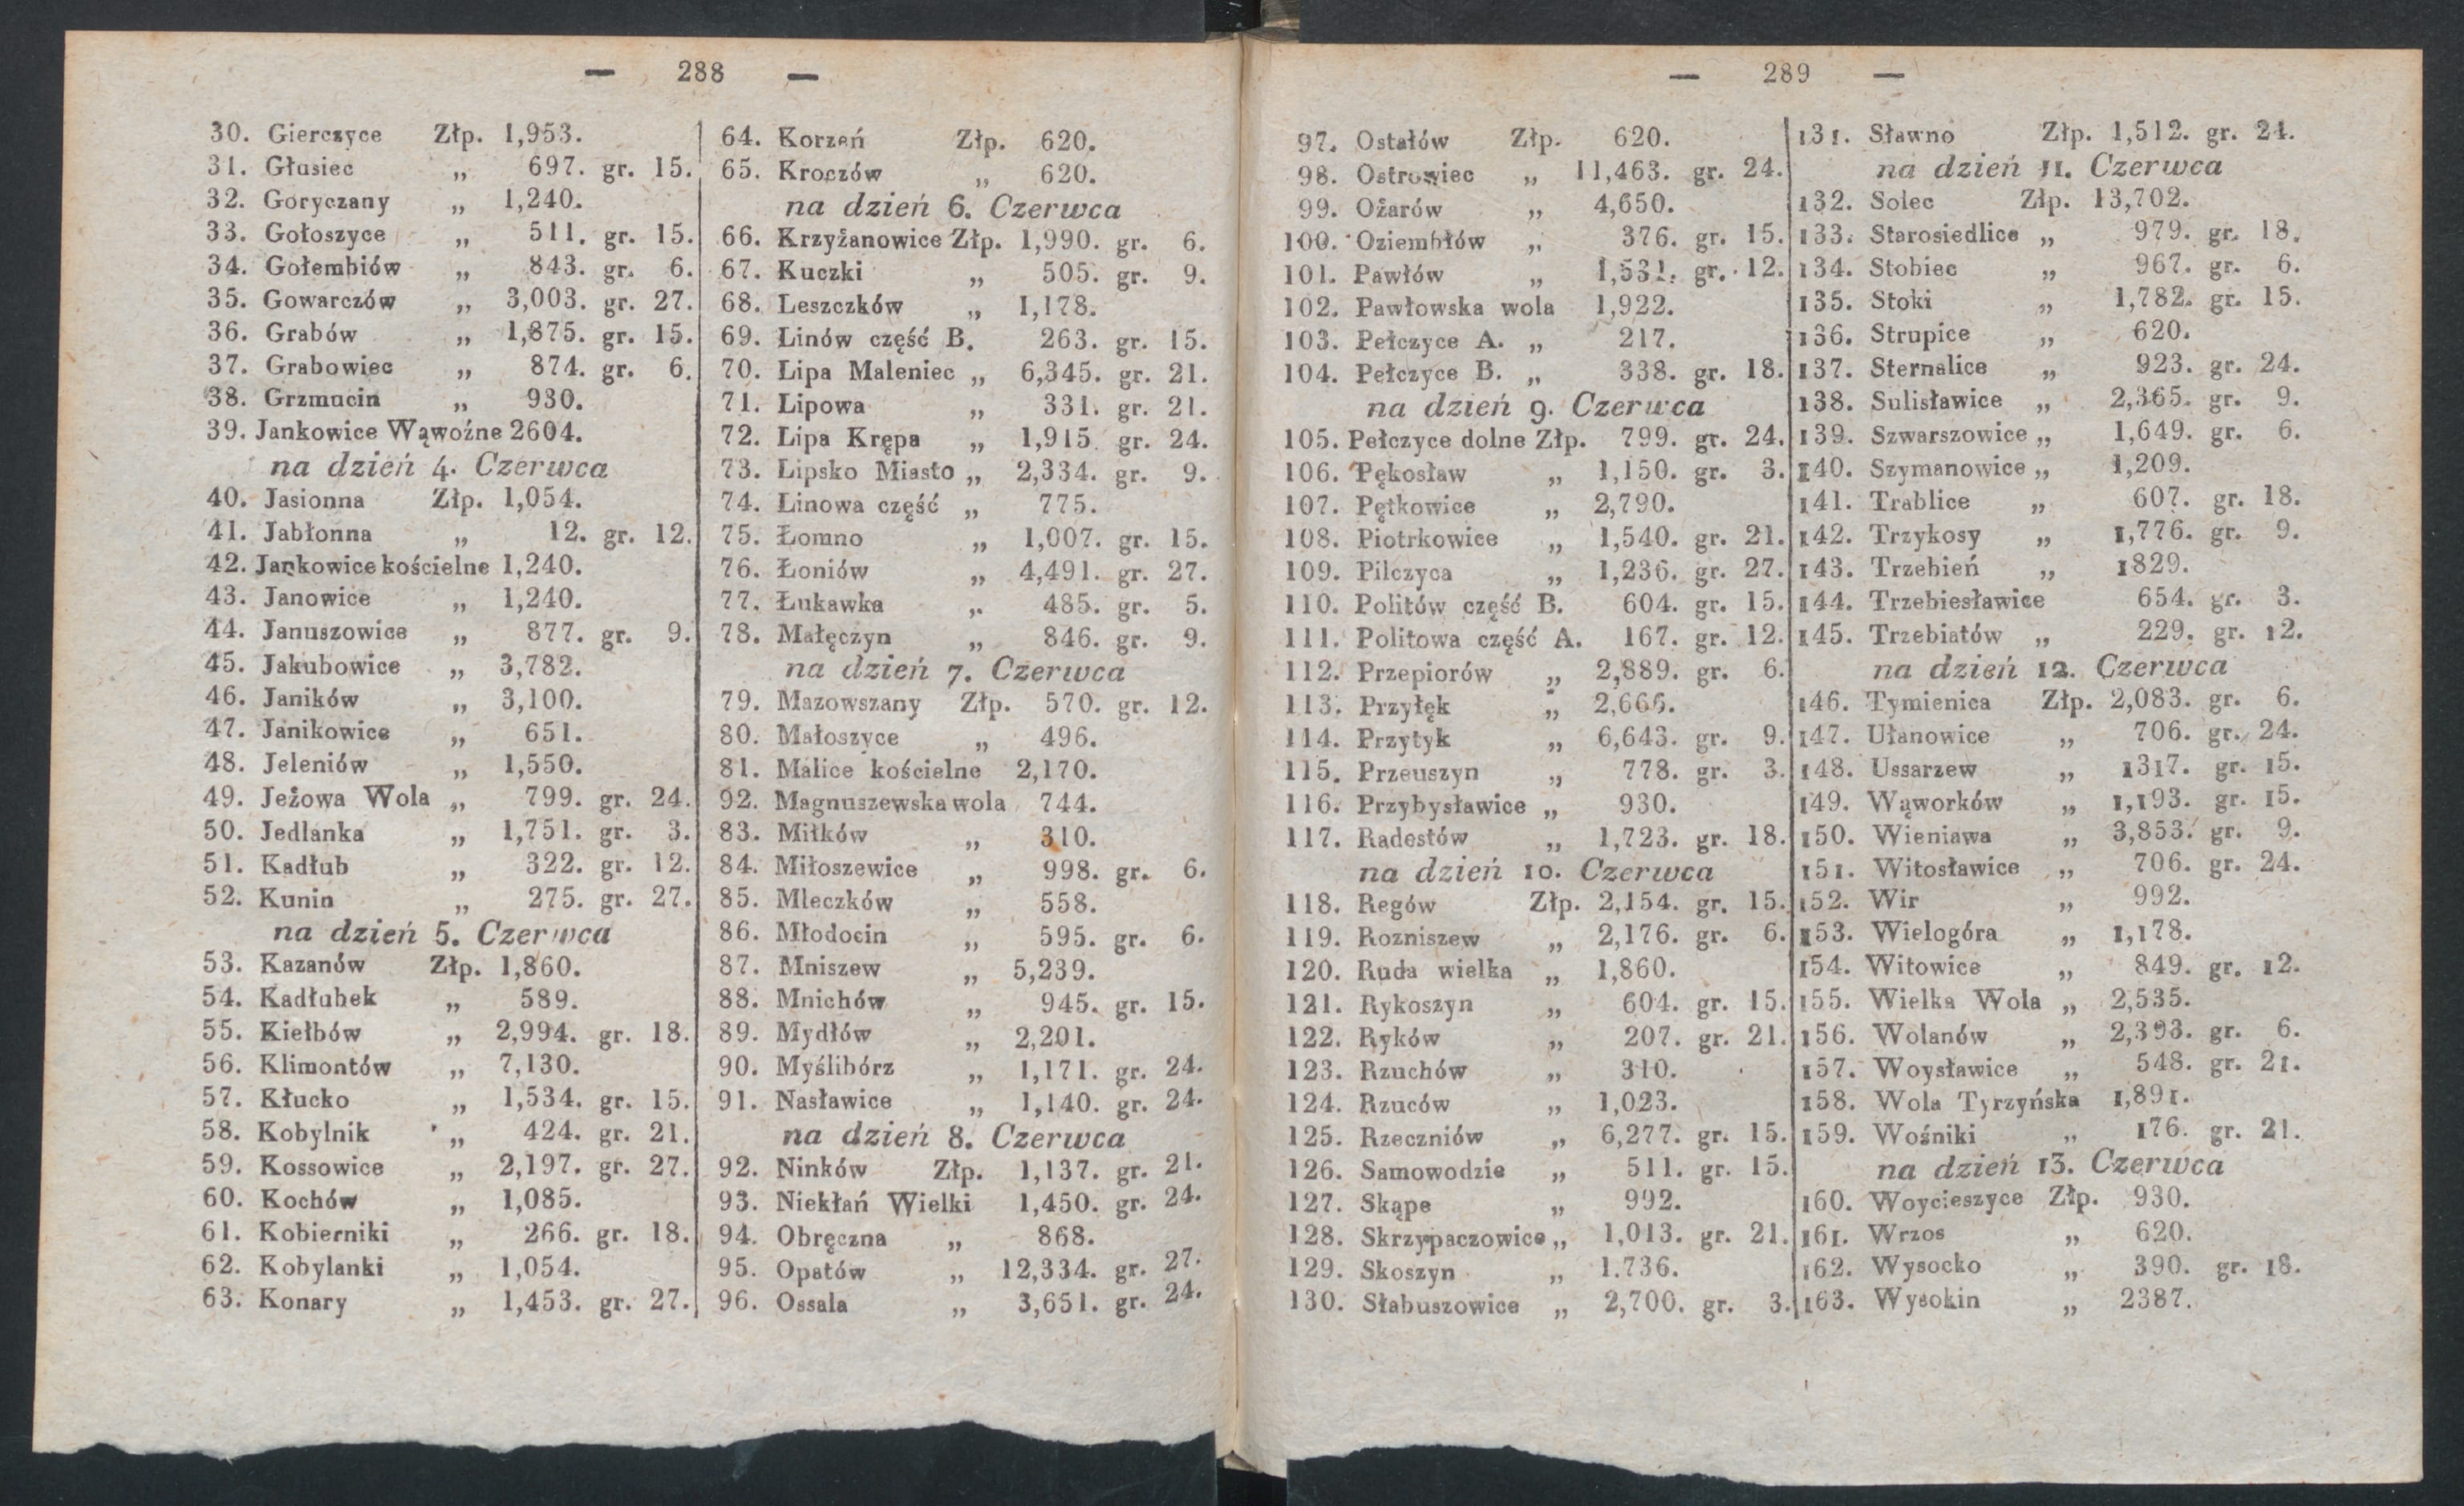 — 288 —
30. Gierczyce Złp. 1,953.
31. Głusiec „ 697. gr. 15.
32. Goryczany „ 1,240.
33. Gołoszyce „ 511. gr. 15.
34. Gołembiów „ 843. gr. 6.
35. Gowarczów „ 3,003. gr. 27.
36. Grabów „ 1,875. gr. 15.
37. Grabowiec „ 874. gr. 6.
38. Grzmucin „ 930.
39. Jankowice Wąwoźne 2604.
na dzień 4. Czerwca
40. Jasionna Złp. 1,054.
41. Jabłonna „ 12. gr. 12.
42. Jankowice kościelne 1,240.
43. Janowice „ 1,240.
44. Januszowice „ 877. gr. 9.
45. Jakubowice „ 3,782.
46. Janików „ 3,100.
47. Janikowice „ 651.
48. Jeleniów „ 1,550.
49. Jeżowa Wola „ 799. gr. 24.
50. Jedlanka „ 1,751. gr. 3.
51. Kadłub „ 322. gr. 12.
52. Kunin „ 275. gr. 27.
na dzień 5. Czerwca
53. Kazanów Złp. 1,860.
54. Kadłubek „ 589.
55. Kiełbów „ 2,994. gr. 18.
56. Klimontów „ 7,130.
57. Kłucko „ 1,534. gr. 15.
58. Kobylnik „ 424. gr. 21.
59. Kossowice „ 2,197. gr. 27.
60. Kochów „ 1,085.
61. Kobierniki „ 266. gr. 18.
62. Kobylanki „ 1,054.
63. Konary „ 1,453. gr. 27.
64. Korzeń Złp. 620.
65. Kroczów „ 620.
na dzień 6. Czerwca
66. Krzyżanowice Złp. 1,990. gr. 6.
67. Kuczki „ 505. gr. 9.
68. Leszczków „ 1,178.
69. Linów część B. 263. gr. 15.
70. Lipa Maleniec „ 6,345. gr. 21.
71. Lipowa „ 331. gr. 21.
72. Lipa Krępa „ 1,915. gr. 24.
73. Lipsko Miasto „ 2,334. gr. 9.
74. Linowa część „ 775.
75. Łomno „ 1,007. gr. 15.
76. Łoniów „ 4,491. gr. 27.
77. Łukawka „ 485. gr. 5.
78. Małęczyn „ 846. gr. 9.
na dzień 7. Czerwca
79. Mazowszany Złp. 570. gr. 12.
80. Małoszyce „ 496.
81. Malice kościelne 2,170.
92. Magnuszewska wola 744.
83. Miłków „ 310.
84. Miłoszewice „ 998. gr. 6.
85. Mleczków „ 558.
86. Młodocin „ 595. gr. 6.
87. Mniszew „ 5,239.
88. Mnichów „ 945. gr. 15.
89. Mydłów „ 2,201.
90. Myślibórz „ 1,171. gr. 24.
91. Nasławice „ 1,140. gr. 24.
na dzień 8. Czerwca
92. Ninków Złp. 1,137. gr. 21.
93. Niekłań Wielki 1,450. gr. 24.
94. Obręczna „ 868.
95. Opatów „ 12,334. gr. 27.
96. Ossala „ 3,651. gr. 24.
— 289 —
97. Ostałów Złp. 620.
98. Ostrowiec „ 11,463. gr. 24.
99. Ożarów „ 4,650.
100. Oziembłów „ 376. gr. 15.
101. Pawłów „ 1,531. gr. 12.
102. Pawłowska wola 1,922.
103. Pełczyce A. „ 217.
104. Pełczyce B. „ 338. gr. 18.
na dzień 9. Czerwca
105. Pełczyce dolne Złp. 799. gr. 24.
106. Pękosław „ 1,150. gr. 3.
107. Pętkowice „ 2,790.
108. Piotrkowice „ 1,540. gr. 21.
109. Pilczyca „ 1,236. gr. 27.
110. Politów część B. 604. gr. 15.
111. Politowa część A. 167. gr. 12.
112. Przepiorów „ 2,889. gr. 6.
113. Przyłęk „ 2,666.
114. Przytyk „ 6,643. gr. 9.
115. Przeuszyn „ 778. gr. 3.
116. Przybysławice „ 930.
117. Radestów „ 1,723. gr. 18.
na dzień 10. Czerwca
118. Regów Złp. 2,154. gr. 15.
119. Rozniszew „ 2,176. gr. 6.
120. Ruda wielka „ 1,860.
121. Rykoszyn „ 604. gr. 15.
122. Ryków „ 207. gr. 21.
123. Rzuchów „ 310.
124. Rzuców „ 1,023.
125. Rzeczniów „ 6,277. gr. 15.
126. Samowodzie „ 511. gr. 15.
127. Skąpe „ 992.
128. Skrzypaczowice „ 1,013. gr. 21.
129. Skoszyn „ 1.736.
130. Słabuszowice „ 2,700. gr. 3.
131. Sławno Złp. 1,512. gr. 24.
na dzień 11. Czerwca
132. Solec Złp. 13,702.
133. Starosiedlice „ 979. gr. 18.
134. Stobiec „ 967. gr. 6.
135. Stoki „ 1,782. gr. 15.
136. Strupice „ 620.
137. Sternalice „ 923. gr. 24.
138. Sulisławice „ 2,365. gr. 9.
139. Szwarszowice „ 1,649. gr. 6.
140. Szymanowice „ 1,209.
141. Trablice „ 607. gr. 18.
142. Trzykosy „ 1,776. gr. 9.
143. Trzebień „ 1829.
144. Trzebiesławice 654. gr. 3.
145. Trzebiatów „ 229. gr. 12.
na dzień 12. Czerwca
146. Tymienica Złp. 2,083. gr. 6.
147. Ułanowice „ 706. gr. 24.
148. Ussarzew „ 1317. gr. 15.
149. Wąworków „ 1,193. gr. 15.
150. Wieniawa „ 3,853. gr. 9.
151. Witosławice „ 706. gr. 24.
152. Wir „ 992.
153. Wielogóra „ 1,178.
154. Witowice „ 849. gr. 12.
155. Wielka Wola „ 2,535.
156. Wolanów „ 2,393. gr. 6.
157. Woysławice „ 548. gr. 21.
158. Wola Tyrzyńska 1,891.
159. Wośniki „ 176. gr. 21.
na dzień 13. Czerwca
160. Woycieszyce Złp. 930.
161. Wrzos „ 620.
162. Wysocko „ 390. gr. 18.
163. Wysokin „ 2387.